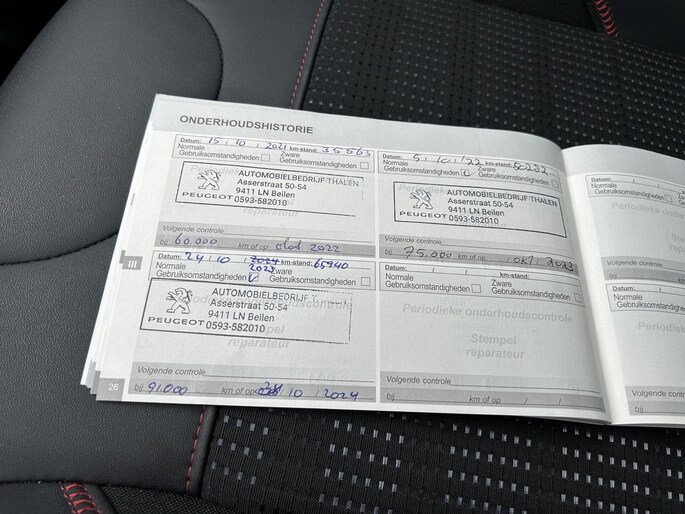 ONDERHOUDSHISTORIE
Datum: 15 / 10 / 2021 km-stand: 35563
Normale Gebruiksomstandigheden
Zware Gebruiksomstandigheden
AUTOMOBIELBEDRIJF THALEN
Asserstraat 50-54
9411 LN Beilen
PEUGEOT 0593-582010
reparateur
Volgende controle
bij 60.000 km of op
2022
Datum: 5 / 10 / '22 km-stand: 50282
Normale Gebruiksomstandigheden
Zware Gebruiksomstandigheden
AUTOMOBIELBEDRIJF THALEN
Asserstraat 50-54
9411 LN Beilen
PEUGEOT 0593-582010
reparateur
Volgende controle
bij 75.000 km of op / okt / 2023
III
Datum: 24 / 10 / 2024 km-stand: 65940
2023
Normale Gebruiksomstandigheden
Zware Gebruiksomstandigheden
AUTOMOBIELBEDRIJF
Asserstraat 50-54
9411 LN Beilen
PEUGEOT 0593-582010
Stempel
reparateur
Volgende controle
bij 91.000 km of op 24 / 10 / 2024
Datum: / / km-stand:
Normale Gebruiksomstandigheden
Zware Gebruiksomstandigheden
Periodieke onderhoudscontrole
Stempel
reparateur
Volgende controle
bij km of op / /
26
Datum: / /
Normale
Gebruiksomstandigheden
Periodieke onderh
Volgende controle
bij
Datum: / /
Normale
Gebruiksomstandigheden
Periodieke
Volgende controle
bij